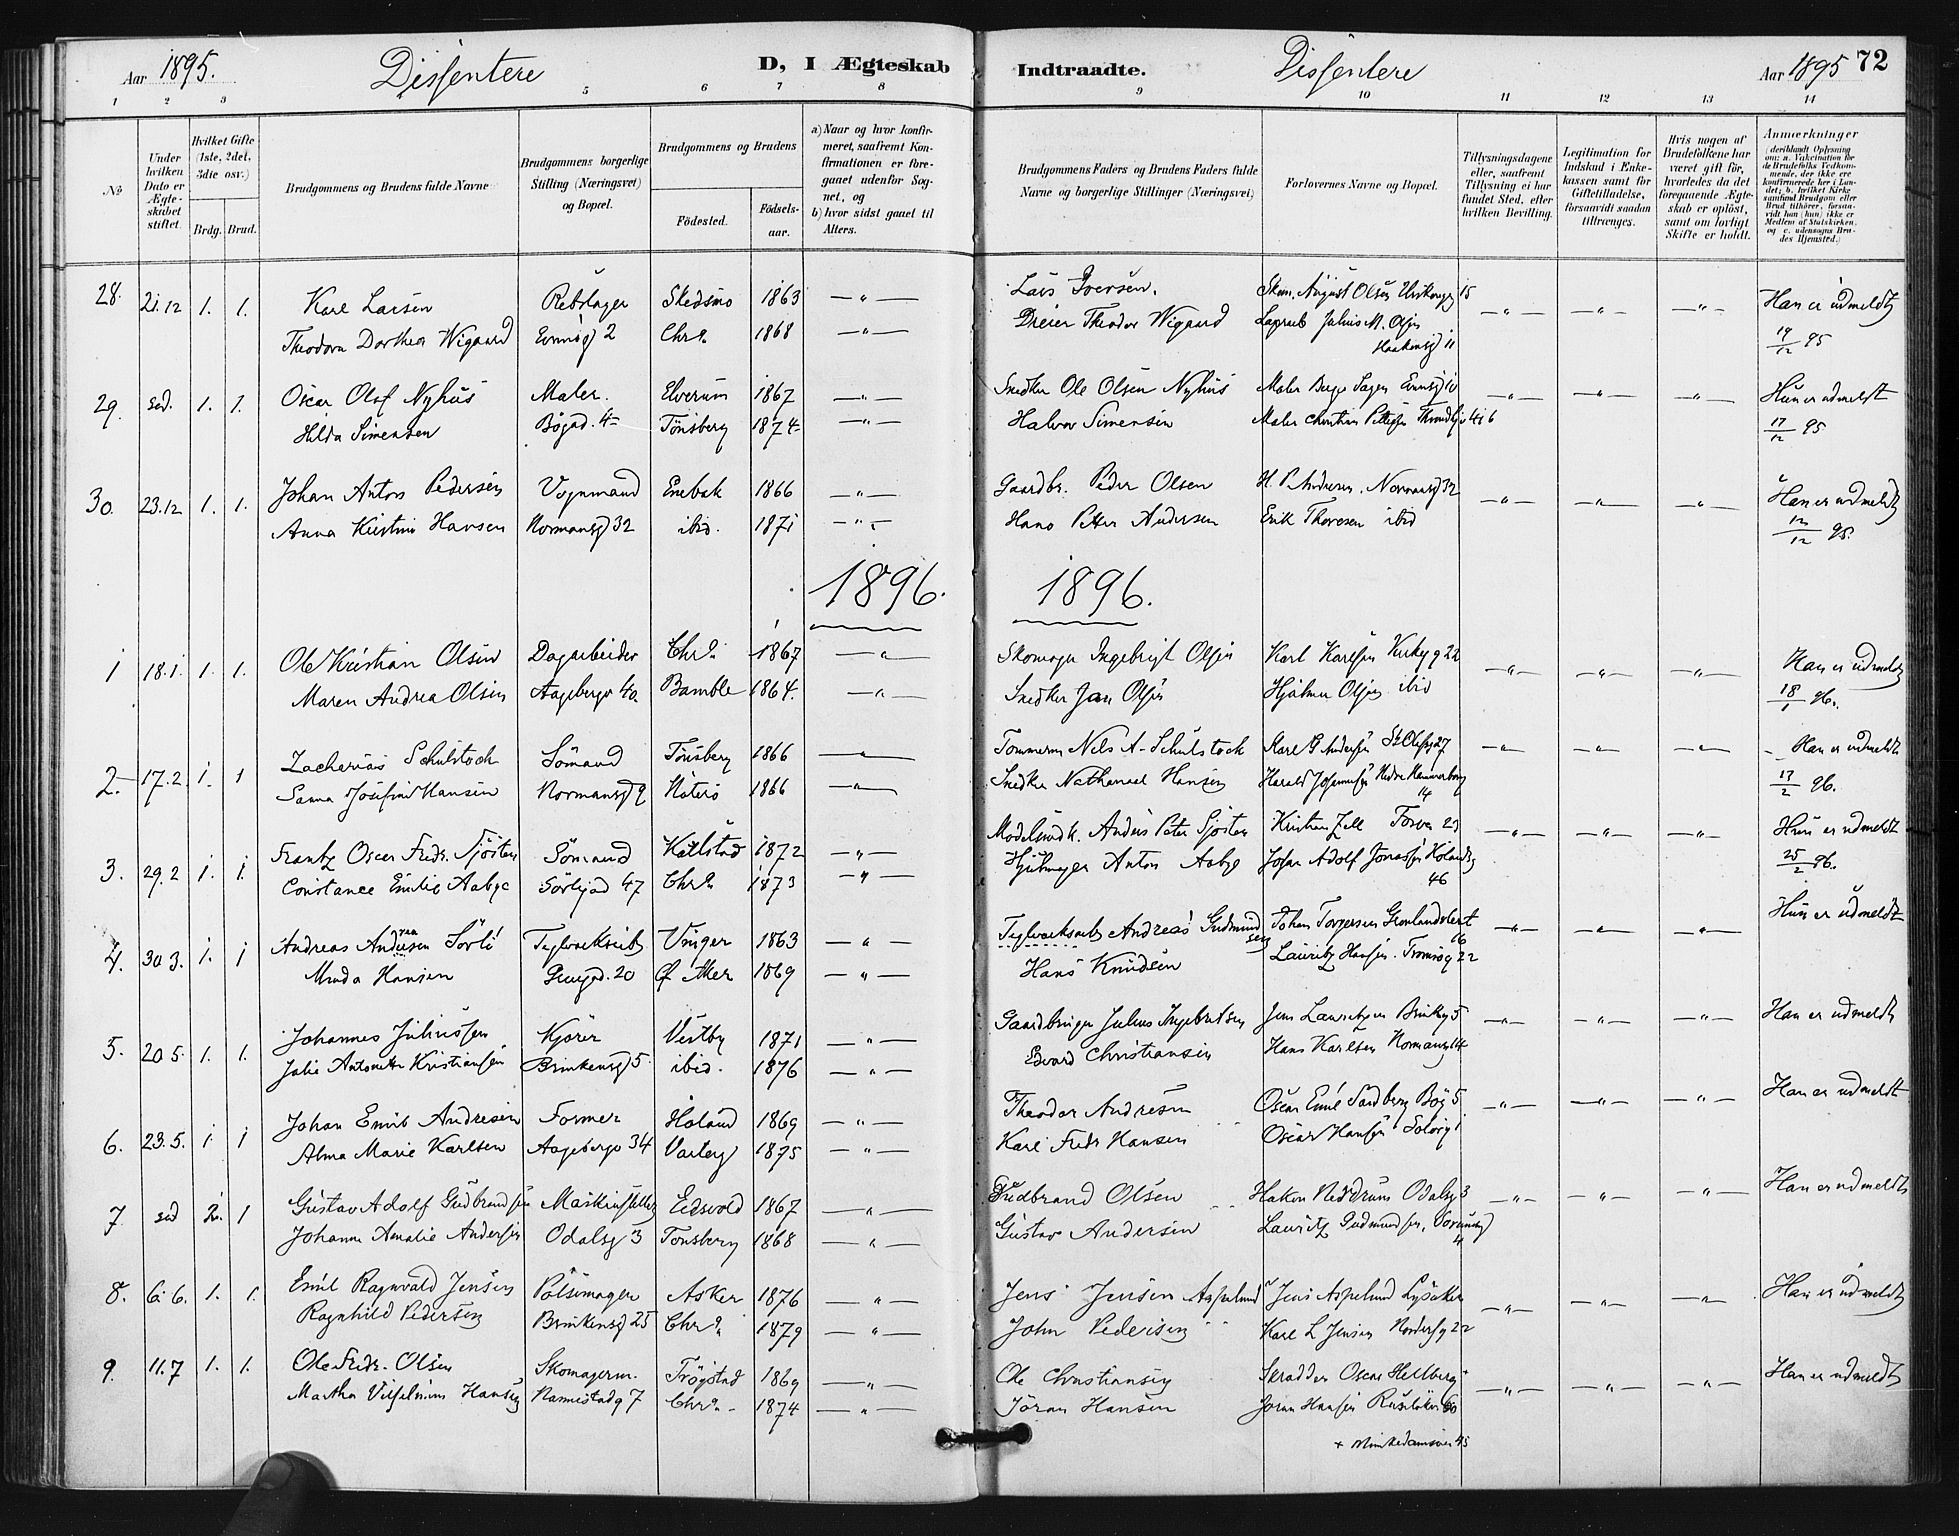 Aar 1895. Dissentere D, I Ægteskab
Indtraadte. Dissentere Aar 1895 72
1 2 3 5 6 7 8 9 10 11 12 13 14
No
Under hvilken Dato er Ægteskabet stiftet.
Hvilket Gifte (1ste, 2det, 3die osv.)
Brdg. Brud.
Brudgommens og Brudens fulde Navne
Brudgommens borgerlige Stilling (Næringsvei) og Bopæl.
Brudgommens og Brudens
Fødested. Fødselsaar.
a) Naar og hvor konfirmeret, saafremt Konfirmationen er foregaaet udenfor Sognet, og
b) hvor sidst gaaet til Alters.
Brudgommens Faders og Brudens Faders fulde Navne og borgerlige Stillinger (Næringsvei)
Forlovernes Navne og Bopæl.
Tillysningsdagene eller, saafremt Tillysning ei har fundet Sted, efter hvilken Bevilling.
Legitimation for Indskud i Enkekassen samt for Giftetilladelse, forsaavidt saadan tiltrænges.
Hvis nogen af Brudefolkene har været gift før, hvorledes da det foregaaende Ægteskab er opløst, samt om lovligt Skifte er holdt.
Anmerkninger (deriblandt Oplysning om: a. Vakcination for de Brudefolks Vedkommende, der ikke ere konfirmerede her i Landet; b. hvilket Kirkesamfund Brudgom eller Brud tilhører, forsaavidt han (hun) ikke er Medlem af Statskirken, og c. udensogns Brudes Hjemsted.)
28. 21.12 1. 1. Karl Larsen Rebslager Skedsmo 1863 — " — Lars Iversen. Skom. August Olsen 15 — " — — " — — " — Han er udmeldt
Theodora Dorthea Wigaard 2 Chr.a 1868 — " — Dreier Theodor Wigaard Julius M. Olsen 11 19/12 95
29. sd. 1. 1. Oscar Olaf Nyhus Maler. Elverum 1867 — " — Snedker Ole Olsen Nyhus Maler — " — — " — — " — Hun er udmeldt
Hilda Simensen Bøgad. 4 Tønsberg 1874 — " — Halvor Simensen Maler Christian 17/12 95
30. 23.12 1. 1. Johan Anton Pedersen Vognmand Enebak 1866 — " — Gaardbr. Peder Olsen H. P. Andersen. Normansg 32 — " — — " — — " — Han er udmeldt
Anna Kristine Hansen Normansg 32 ibid. 1871 — " — Hans Petter Andersen Erik Thoresen ibid 12/12 95.
1896. 1896.
1 18.1. 1. 1. Ole Kristian Olsen Dagarbeider Chr.a 1867 — " — Skomager Ingebrigt Olsen Karl Karlsen 22 — " — — " — — " — Han er udmeldt
Maren Andrea Olsen Aagebergv 40. Bamble 1864. — " — Snedker Jan Olsen Hjalmar Olsen ibid 18/1 96.
2. 17.2. 1. 1 Zacharias Schulstock Sömand Tönsberg 1866 — " — Tømmerm Nils A. Schulstock Karl G Andersen St Olafsg 27 — " — — " — — " — Han er udmeldt
Sanna Josefine Hansen Normansg 9 Nøterö 1866 — " — Snedker Nathanael Hansen Harald Johannesen 14 17/2 96.
3. 29.2 1. 1. Frantz Oscar Fredr. Sjösten Sömand 1872 — " — Anders Peter Sjösten Kristian — " — — " — — " — Hun er udmeldt
Constance Emilie Aabye Sörligad 47 Chr.a 1873 — " — Anton Aabye Johan Adolf Jonassen 46 25/2 96.
4. 30 3. 1. 1 Andreas Andersen Sörli Teglverksarb Vinger 1863 — " — Teglverksarb Andreas Gudmundsen Johan Torgersen Grønlandsleret 16 — " — — " — — " — Hun er udmeldt
Minda Hansen 20 Ø Aker 1869 — " — Hans Knudsen Lauritz Hansen. Tromsøg 22
5. 20 5. 1. 1. Johannes Juliussen Kjører Vestby 1871 — " — Gaardbruger Julius Ingebretsen Jens Lauritzen Brinkg 5 — " — — " — — " — Han er udmeldt
Julie Antonette Kristiansen Brinkensg 5. ibid. 1876 — " — Edvard Christiansen Hans Karlsen Normansg 14
6. 23.5. 1. 1 Johan Emil Andresen Former Höland 1869 — " — Theodor Andresen Oscar Emil Sandberg Bög 5 — " — — " — — " — Han er udmeldt
Alma Marie Karlsen Aagebergv 34 Varteig 1875 — " — Karl Fredr Hansen Oscar Hansen Solørg 1
7. sd 2. 1 Gustav Adolf Gudbrandsen Eidsvold 1867 — " — Gudbrand Olsen Hakon Neddrum Odalsg 3 — " — — " — — " — Han er udmeldt
Johanne Amalie Andersen Odalsg 3 Tönsberg 1868 — " — Gustav Andersen Lauritz Gudmundsen, 4
8. 6.6. 1. 1. Emil Ragnvald Jensen Pölsemager Asker 1876 — " — Jens Jensen Aspelund Jens Aspelund Lysaker — " — — " — — " — Han er udmeldt
Ragnhild Pedersen Brinkensg 25 Chr.a 1879 — " — John Pedersen Karl L Jensen 22
9. 11.7 1. 1. Ole Fredr. Olsen Skomagerm. Trögstad 1869 — " — Ole Christiansen Skrædder Oscar Hellberg — " — — " — — " — Han er udmeldt
Martha Vilhelmine Hansen Nannestadg 7 Chr.a 1874 — " — Jöran Hansen Joran Hansen
+ Munkedamsvei 45